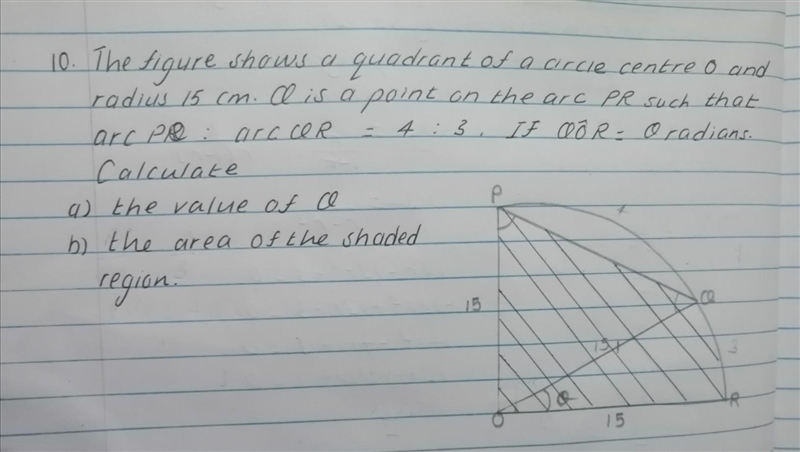 10. The figure shows a quadrant of a circle centre O and
radius 15 cm. Q is a point on the arc PR such that
arc PQ : arc QR = 4 : 3. If QÔR = θ radians.
Calculate
a) the value of θ
b) the area of the shaded
region.
P
Q
15
15
3
θ
O
R
15